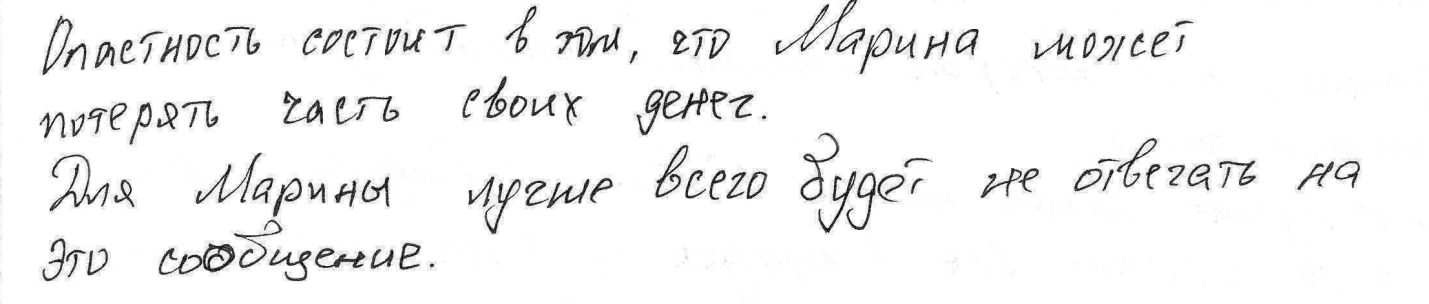 Опастность состоит в том, что Марина может
потерять часть своих денег.
Для Марины лучше всего будет не отвечать на
это сообщение.